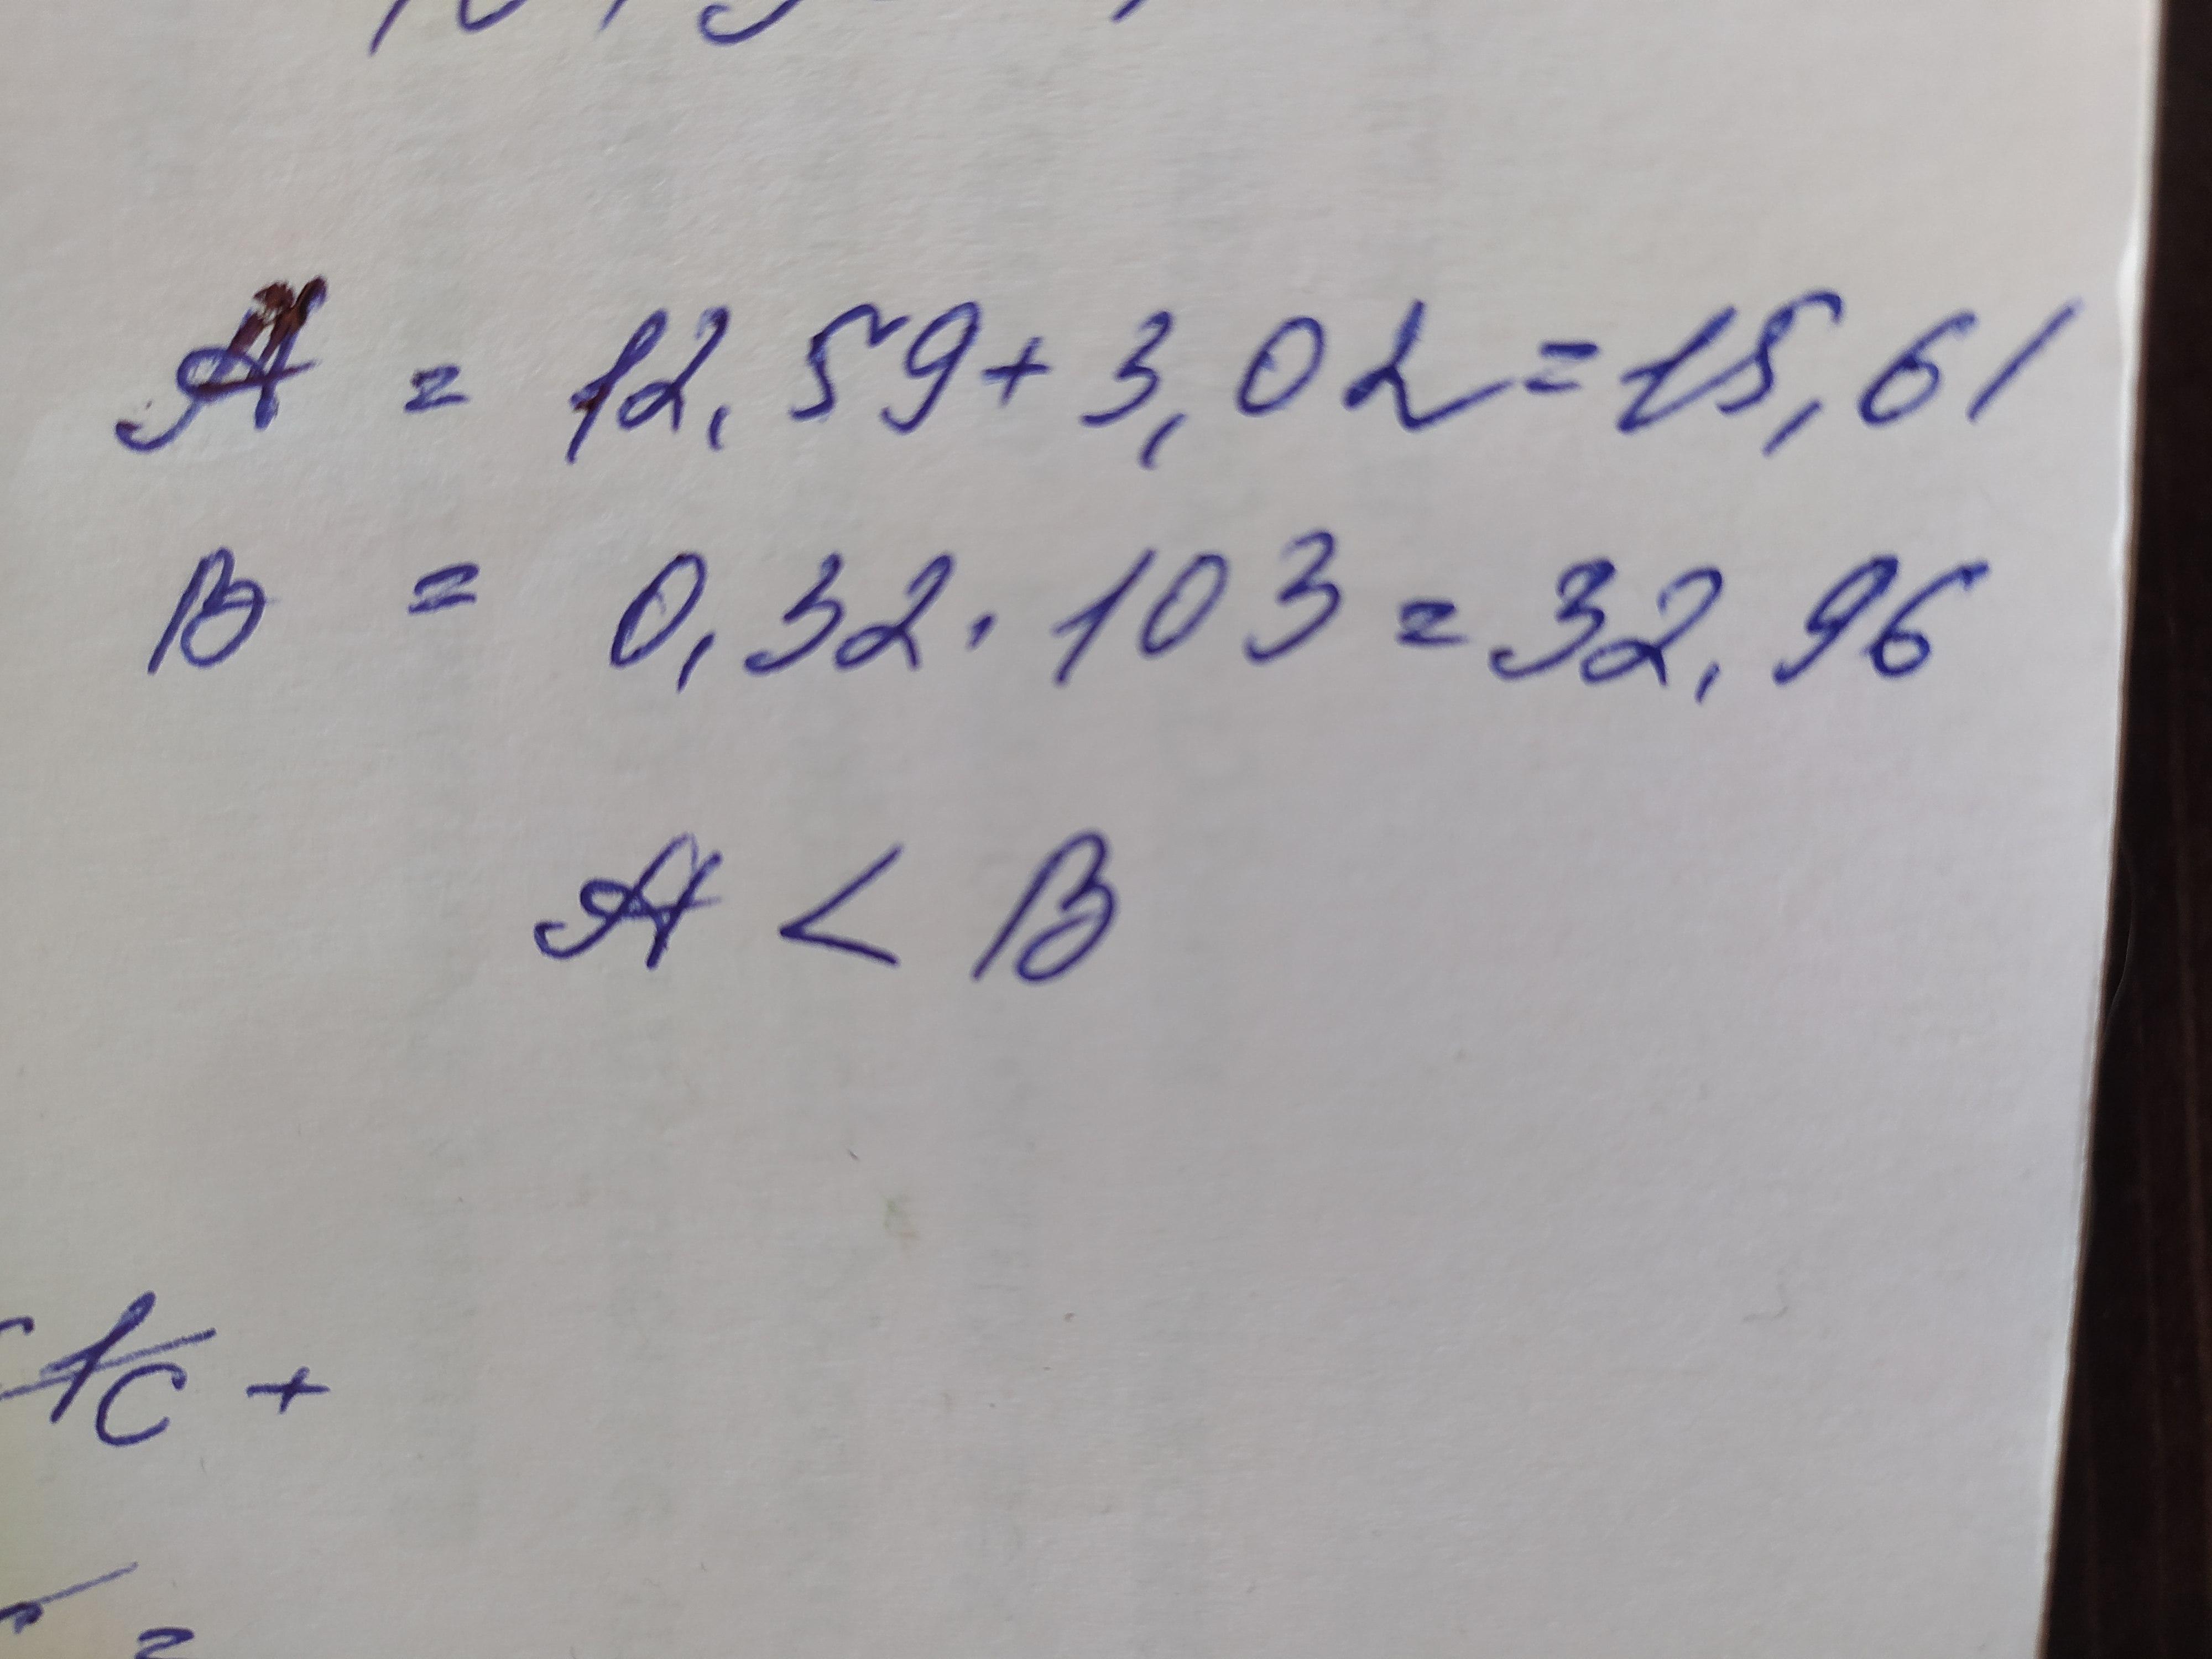 A = 12,59+3,02=15,61
B = 0,32·103=32,96
A < B
1/c +
=